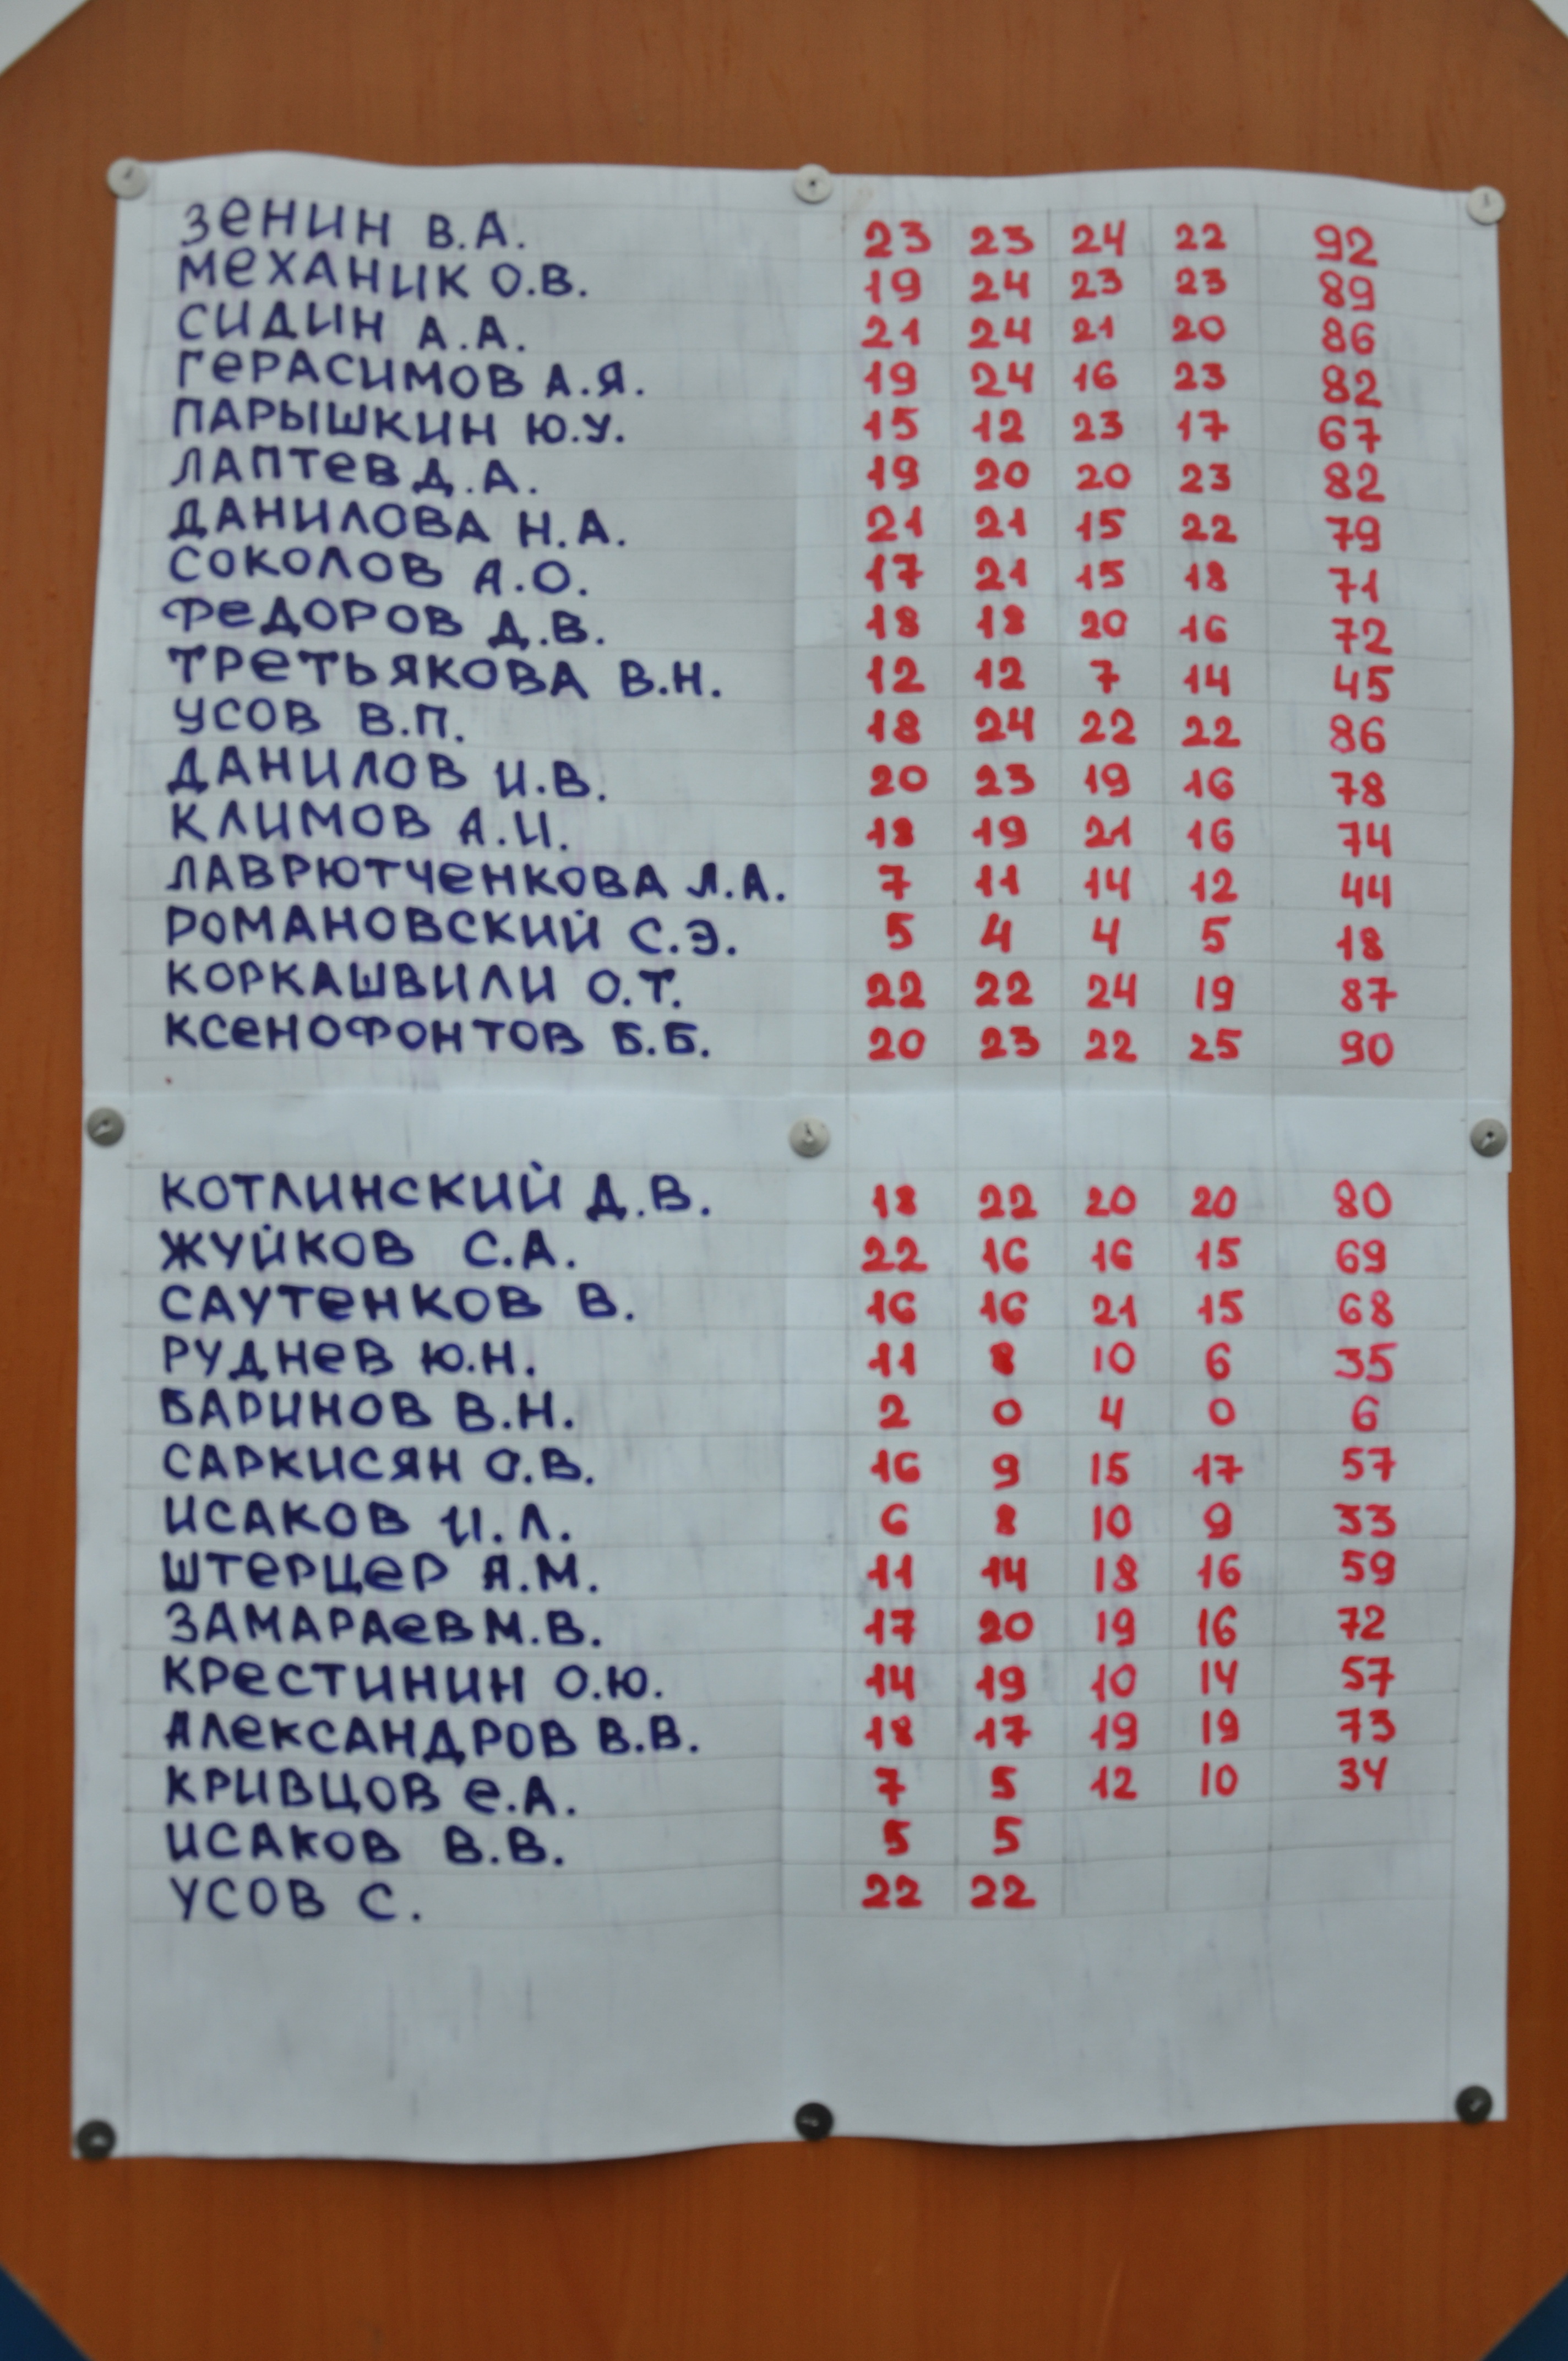 ЗеНИН В.А. 23 23 24 22 92
МеХАНИК О.В. 19 24 23 23 89
СИДИН А.А. 21 24 21 20 86
ГеРАСИМОВ А.Я. 19 24 16 23 82
ПАРЫШКИН Ю.У. 15 12 23 17 67
ЛАПТеВ Д.А. 19 20 20 23 82
ДАНИЛОВА Н.А. 21 21 15 22 79
СОКОЛОВ А.О. 17 21 15 18 71
ФеДОРОВ Д.В. 18 18 20 16 72
ТРеТЬЯКОВА В.Н. 12 12 7 14 45
УСОВ В.П. 18 24 22 22 86
ДАНИЛОВ И.В. 20 23 19 16 78
КЛИМОВ А.И. 18 19 21 16 74
ЛАВРЮТЧеНКОВА Л.А. 7 11 14 12 44
РОМАНОВСКИЙ С.Э. 5 4 4 5 18
КОРКАШВИЛИ О.Т. 22 22 24 19 87
КСеНОФОНТОВ Б.Б. 20 23 22 25 90
КОТЛИНСКИЙ Д.В. 18 22 20 20 80
ЖУЙКОВ С.А. 22 16 16 15 69
САУТеНКОВ В. 16 16 21 15 68
РУДНеВ Ю.Н. 11 8 10 6 35
БАРИНОВ В.Н. 2 0 4 0 6
САРКИСЯН О.В. 16 9 15 17 57
ИСАКОВ И.Л. 6 8 10 9 33
ШТеРЦеР Я.М. 11 14 18 16 59
ЗАМАРАеВ М.В. 17 20 19 16 72
КРеСТИНИН О.Ю. 14 19 10 14 57
АЛеКСАНДРОВ В.В. 18 17 19 19 73
КРИВЦОВ е.А. 7 5 12 10 34
ИСАКОВ В.В. 5 5
УСОВ С. 22 22